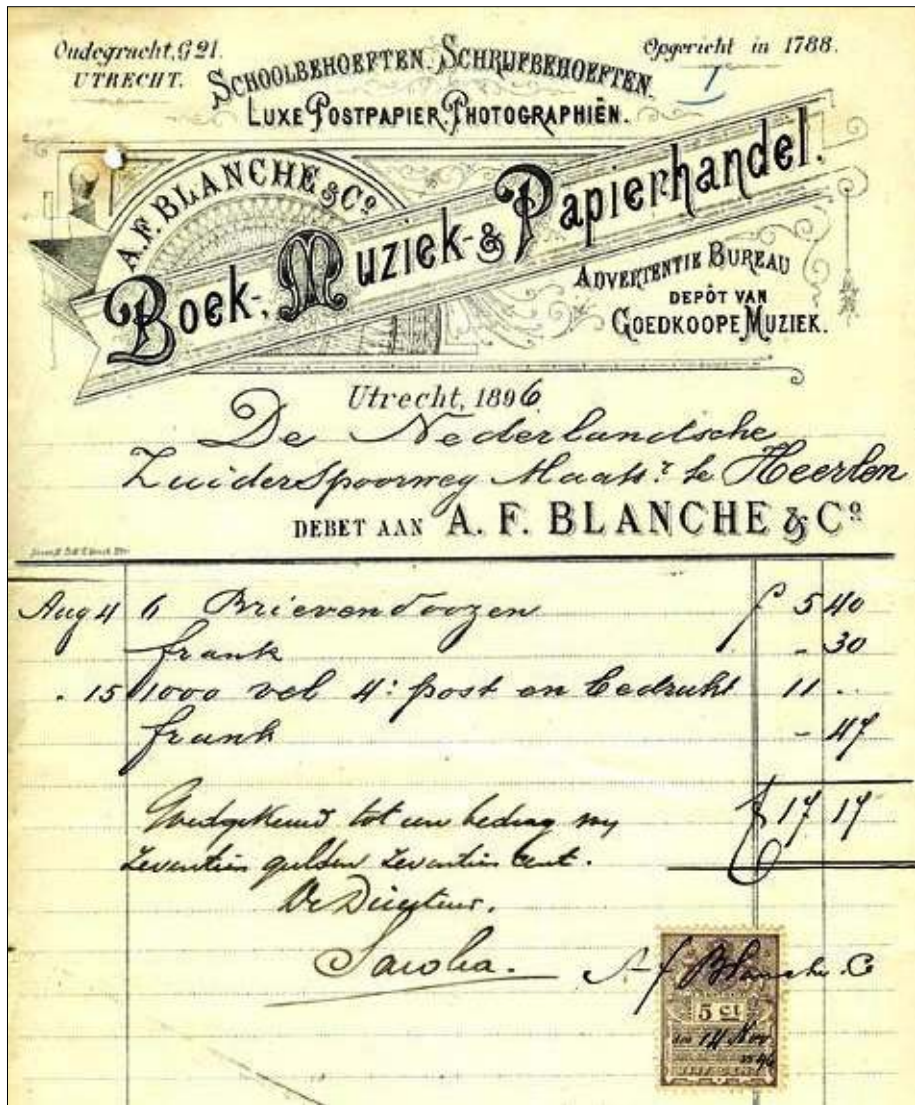 Oudegracht, G 21.
UTRECHT.
Opgericht in 1788.
1
SCHOOLBEHOEFTEN. SCHRIJFBEHOEFTEN.
LUXE POSTPAPIER. PHOTOGRAPHIËN.
A. F. BLANCHE & Co
Boek-, Muziek- & Papierhandel.
ADVERTENTIE BUREAU
DEPÔT VAN
GOEDKOOPE MUZIEK.
Utrecht, 1896
De Nederlandsche
Zuider Spoorweg Maats. te Heerlen
DEBET AAN A. F. BLANCHE & Co
Aug 4 6 Brievendoozen f 5 40
frank - 30
. 15 1000 vel 4: post en bedrukt 11 ..
frank - 47
Goedgekeurd tot een bedrag van f 17 17
Zeventien gulden Zeventien cent.
De Directeur.
A. F. Blanche Co
5 ct
den 14 Nov
18 96